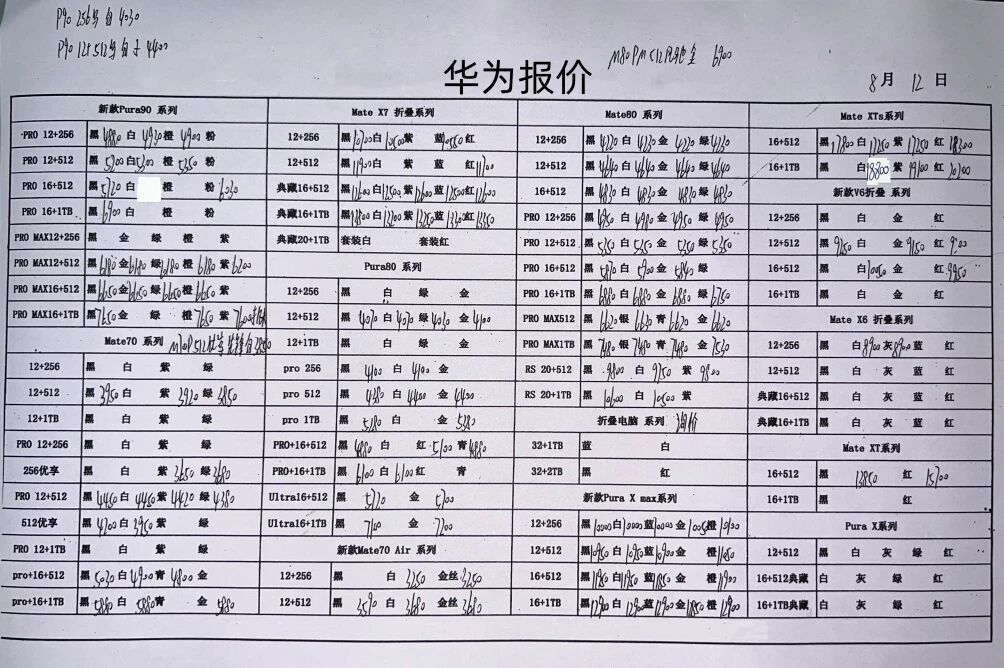 P90 256 白 4030
P90 12+512 白 4400
M80PM 512 金 6900
华为报价
8月 12日
新款Pura90 系列
PRO 12+256 黑4880 白4930 橙4900 粉
PRO 12+512 黑5200 白5200 橙5250 粉
PRO 16+512 黑5720 白 橙 粉6030
PRO 16+1TB 黑6900 白 橙 粉
PRO MAX12+256 黑 金 绿 橙 紫
PRO MAX12+512 黑6180 金6180 绿6180 橙6180 紫6200
PRO MAX16+512 黑6650 金6650 绿6650 橙6650 紫
PRO MAX16+1TB 黑7650 金 绿 橙7650 紫7600
Mate70 系列
12+256 黑 白 紫 绿
12+512 黑3950 白 紫3920 绿3850
12+1TB 黑 白 紫 绿
PRO 12+256 黑 白 紫 绿
256优享 黑 白 紫3650 绿3680
PRO 12+512 黑4450 白4450 紫4420 绿4380
512优享 黑4200 白3950 紫 绿
PRO 12+1TB 黑 白 紫 绿
pro+16+512 黑5030 白4900 青4800 金
pro+16+1TB 黑5880 白5880 青 金4880
Mate X7 折叠系列
12+256 黑10700 白10500 紫 蓝10550 红
12+512 黑11900 白 紫 蓝 红11700
典藏16+512 黑12600 白12500 紫12600 蓝12500 红12600
典藏16+1TB 黑13800 白13200 紫13250 蓝13200 红13350
典藏20+1TB 套装白 套装红
Pura80 系列
12+256 黑 白 绿 金
12+512 黑4070 白4070 绿4030 金4100
12+1TB 黑 白 绿 金
pro 256 黑4100 白4100 金
pro 512 黑4380 白4400 金4400
pro 1TB 黑5280 白 金5280
PRO+16+512 黑4880 白 红5100 青4880
PRO+16+1TB 黑6100 白6100 红 青
Ultra16+512 黑5720 金5700
Ultra16+1TB 黑7100 金7200
新款Mate70 Air 系列
12+256 黑 白3250 金丝3250
12+512 黑3590 白3680 金丝3680
Mate80 系列
12+256 黑4220 白4230 金4220 绿4230
12+512 黑4640 白4640 金4640 绿4640
16+512 黑4830 白4830 金4830 绿4830
PRO 12+256 黑4950 白4980 金4950 绿4950
PRO 12+512 黑5350 白5250 金5250 绿5250
PRO 16+512 黑5870 白5900 金5840 绿
PRO 16+1TB 黑6880 白6880 金6880 绿6750
PRO MAX512 黑6620 银6630 青6620 金6620
PRO MAX1TB 黑7480 银7480 青7480 金7530
RS 20+512 黑9800 白9750 紫9800
RS 20+1TB 黑10600 白10500 紫
折叠电脑 系列 询价
32+1TB 蓝 白
32+2TB 黑 红
新款Pura X max系列
12+256 黑10000 白10000 蓝10000 金10050 橙10100
12+512 黑10950 白10950 蓝10900 金 橙11050
16+512 黑11950 白11850 蓝11850 金 橙11900
16+1TB 黑12900 白12900 蓝12900 金12850 橙12900
Mate XTs系列
16+512 黑17800 白17250 紫17250 红18300
16+1TB 黑 白18800 紫19100 红20700
新款V6折叠 系列
12+256 黑 白 金 红
12+512 黑9250 白 金9150 红9200
16+512 黑 白10050 金 红9950
16+1TB 黑 白 金 红
Mate X6 折叠系列
12+256 黑 白8900 灰8900 蓝 红
12+512 黑 白 灰 蓝 红
典藏16+512 黑 白 灰 蓝 红
典藏16+1TB 黑 白 灰 蓝 红
Mate XT系列
16+512 黑13850 红15700
16+1TB 黑 红
Pura X系列
12+512 黑 白 灰 绿 红
16+512典藏 白 灰 绿 红
16+1TB典藏 白 灰 绿 红